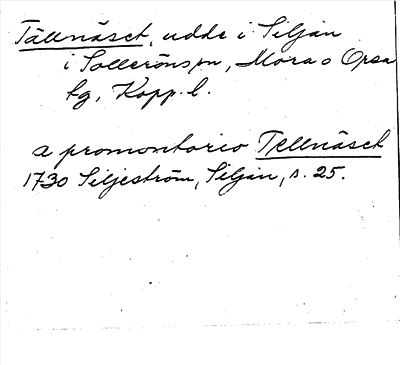 Tällnäset, udde i Siljan
i Solleröns sn, Mora o Orsa
tg, Kopp. l.
a promontorio Tellnäset
1730 Siljeström, Siljan, s. 25.